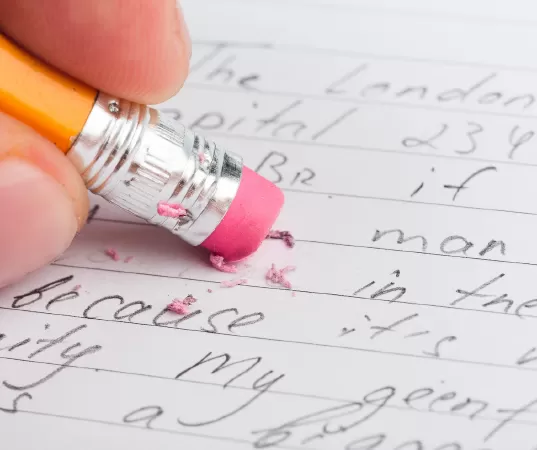 The London
pital 234
Br if
man
in the
because it's
ity. My
s a